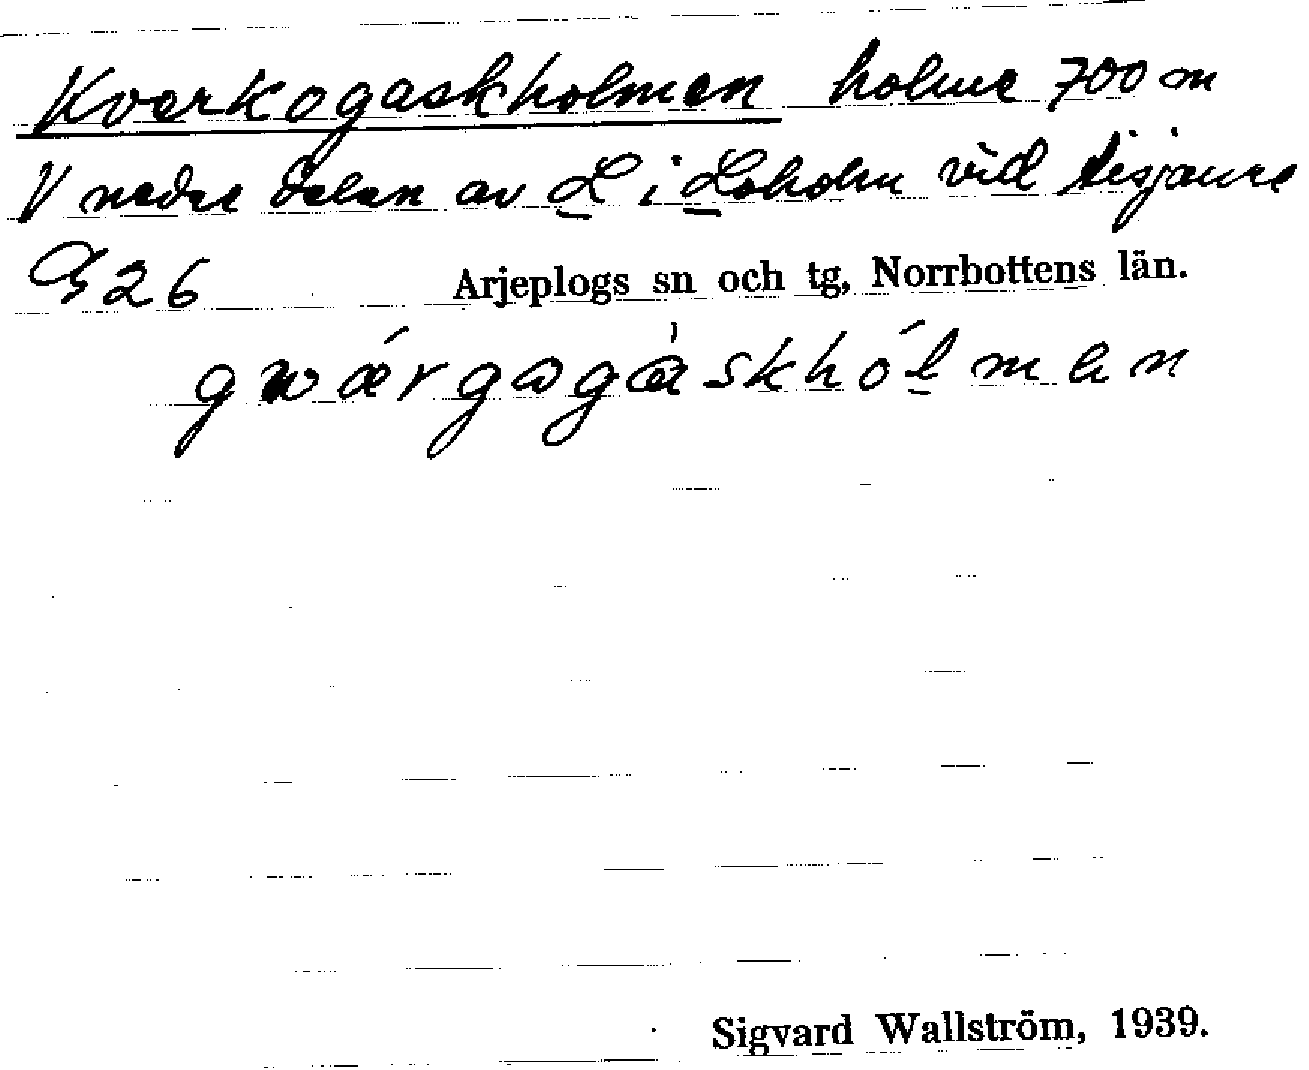 Kvarkogaskholmen holme 700 m
V nedre delen av L i Loholm vid Aisjaure
G 26 Arjeplogs sn och tg, Norrbottens län.
gwǽrgogàskhólmen
Sigvard Wallström, 1939.